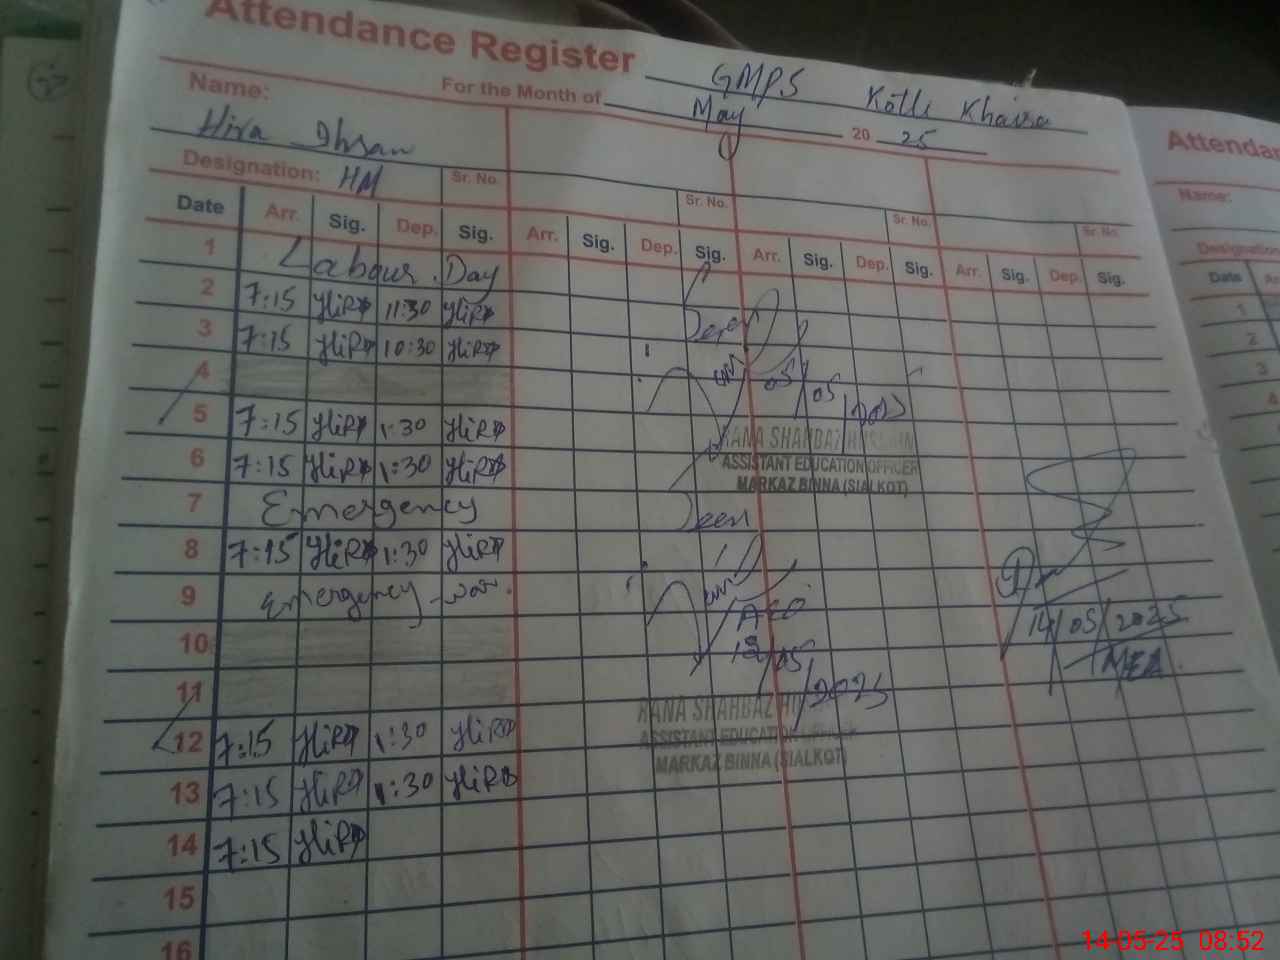 Attendance Register GMPS Kotli Khaira
For the Month of May 2025
Name:
Hira Ihsan
Designation: HM Sr. No. Sr. No. Sr. No. Sr. No.
Date Arr. Sig. Dep. Sig. Arr. Sig. Dep. Sig. Arr. Sig. Dep. Sig. Arr. Sig. Dep. Sig.
1 Labour Day
2 7:15 HiRa 11:30 HiRa
3 7:15 HiRa 10:30 HiRa
4
5 7:15 HiRa 1:30 HiRa
6 7:15 HiRa 1:30 HiRa
7 Emergency
8 7:15 HiRa 1:30 HiRa
9 Emergency war.
10
11
12 7:15 HiRa 1:30 HiRa
13 7:15 HiRa 1:30 HiRa
14 7:15 HiRa
15
16
Seen
05/05/2025
RANA SHAHBAZ HUSSAIN
ASSISTANT EDUCATION OFFICER
MARKAZ BINNA (SIALKOT)
Seen
AEO
12/05/2025
RANA SHAHBAZ HUSSAIN
ASSISTANT EDUCATION OFFICER
MARKAZ BINNA (SIALKOT)
14/05/2025
MEA
Attendan
Name:
Designation
Date
1
2
3
4
14-05-25 08:52